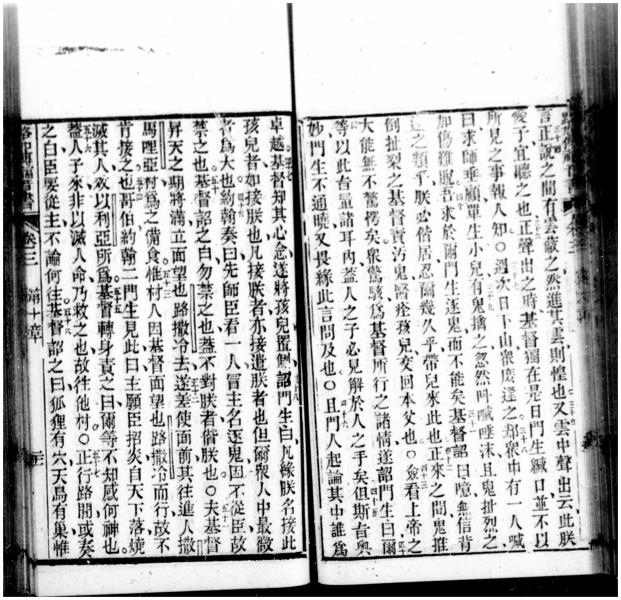 言正說之間有雲蔽之矣進其雲則惶也又雲中聲出云此朕
愛子宜聽之也正聲出之時基督獨在是日門生緘口並不以
所見之事報人知○週次日下山眾慶逢之却眾中有一人喊
曰求師垂顧單生小兒有鬼擒之忽然呌喊唾沫且鬼扯烈之
加傷難脫吾求於爾門生逐鬼而不能矣基督詔曰噫無信背
之類乎朕必偕居忍爾幾久乎帶兒來此也正來之間鬼推
倒扯裂之基督責汚鬼醫痊孩兒交回本父也○僉看上帝之
大能無不驚愕矣眾驚駭為基督所行之諸情遂詔門生曰爾
等以此言置諸耳內蓋人之子必見解於人之手矣但斯言奧
妙門生不通曉又畏緣此言問及也○且門人起論其中誰為
卓越基督知其心念遂將孩兒置側詔門生曰凡緣朕名接此
孩兒者如接朕也凡接朕者亦接遣朕者也但爾眾人中最微
者為大也約翰奏曰先師臣看一人冒主名逐鬼因不從臣故
禁之也基督詔之曰勿禁之也蓋不對朕者偕朕也○夫基督
昇天之期將滿立面望也路撒冷去遂差使面前其往進人撒
馬哩亞村為之備食惟村人因基督面望也路撒冷而行故不
肯接之也哥伯約翰二門生見此曰主願臣招炎自天下落燒
滅其人效以利亞所為基督轉身責之曰爾等不知感何神也
蓋人子來非以滅人命乃救之也故往他村○正行路間或奏
之曰臣要從主不論何往基督詔之曰狐狸有穴天鳥有巢惟
路加傳福音書 卷三 第十章